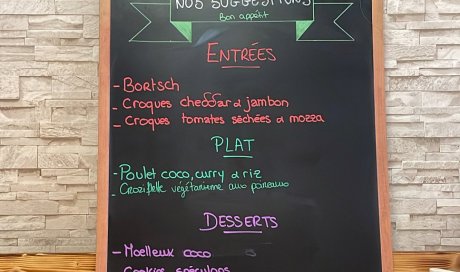 NOS SUGGESTIONS
Bon appétit
ENTRÉES
- Bortsch
- Croques cheddar & jambon
- Croques tomates séchées & mozza
PLAT
- Poulet coco, curry & riz
- Croziflette végétarienne aux poireaux
DESSERTS
- Moelleux coco
- Cookies spéculoos